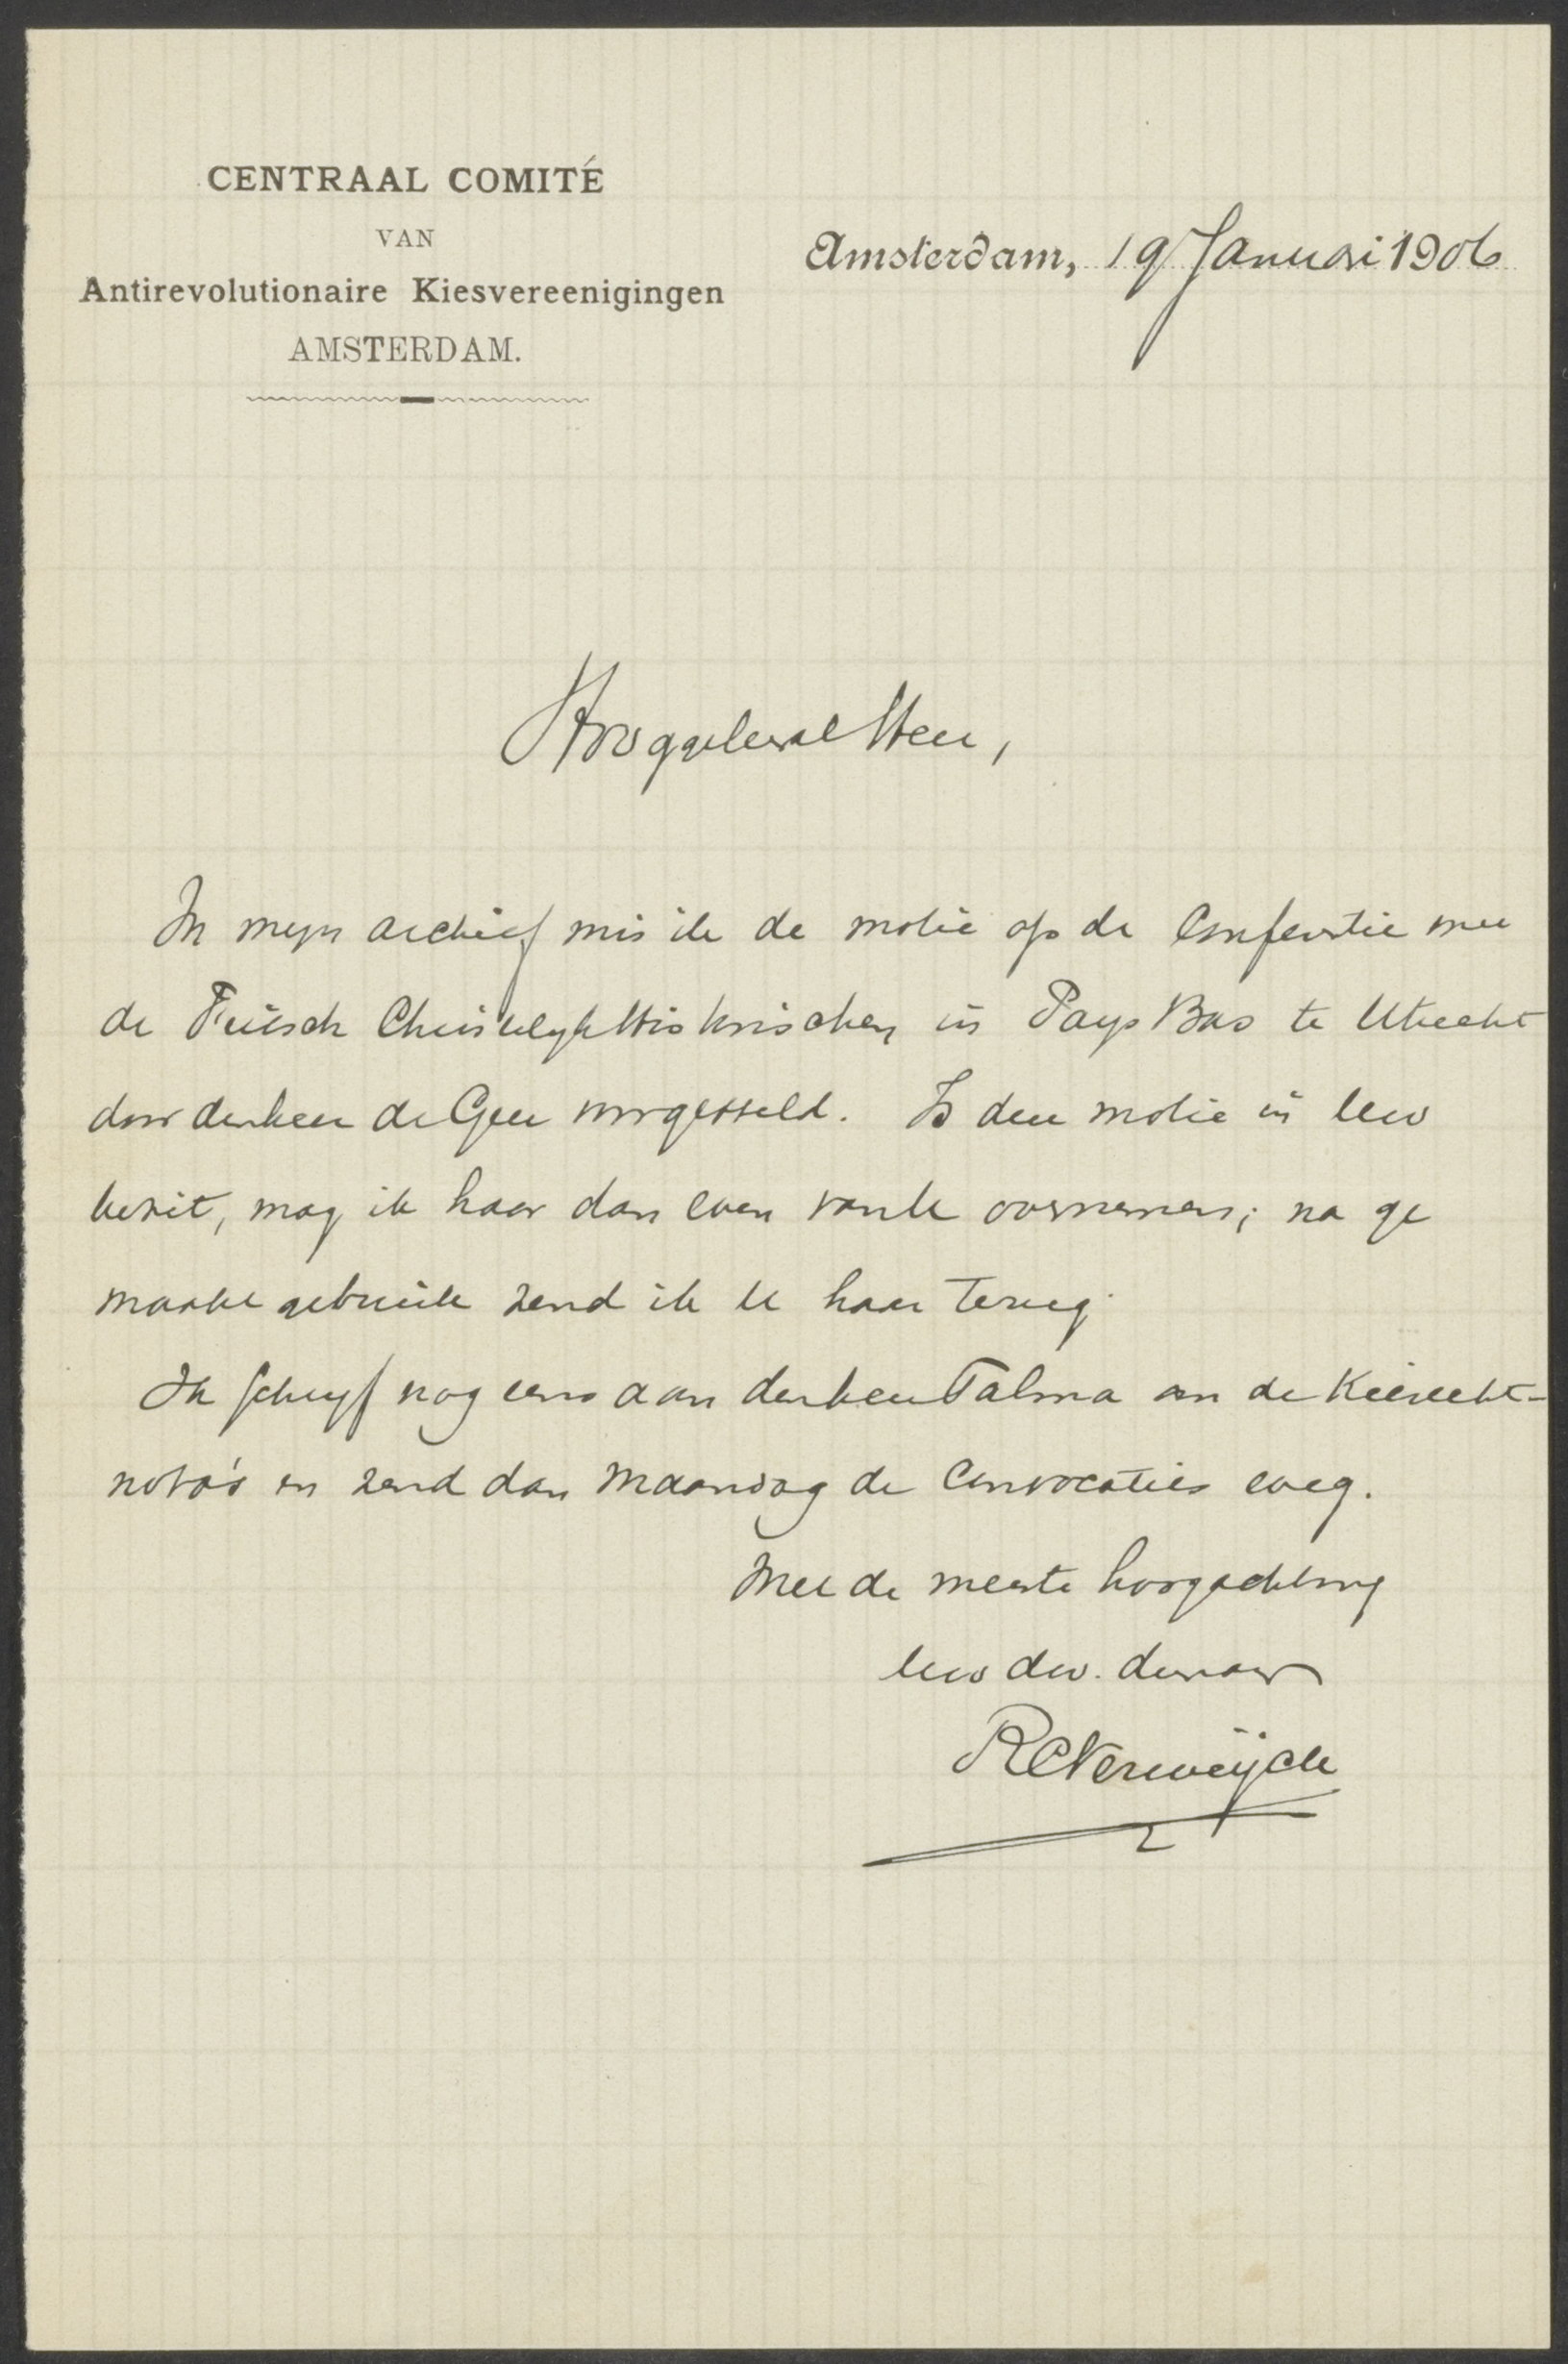 CENTRAAL COMITÉ
VAN
Antirevolutionaire Kiesvereenigingen
AMSTERDAM.
Amsterdam, 19 Januari 1906
Hooggeleerde Heer,
In mijn archief mis ik de motie op de Conferentie met
de Friesch Christelijk Historischen in Pays Bas te Utrecht
door den heer de Geer voorgesteld. Is deze motie in Uw
bezit, mag ik haar dan even van U overnemen; na ge
maakt gebruik zend ik U haar terug.
Ik schrijf nog eens aan den heer Talma om de Kiesrecht-
nota's en zend dan Maandag de Convocaties weg.
Met de meeste hoogachting
Uw dw. dienaar
RCVerweijck